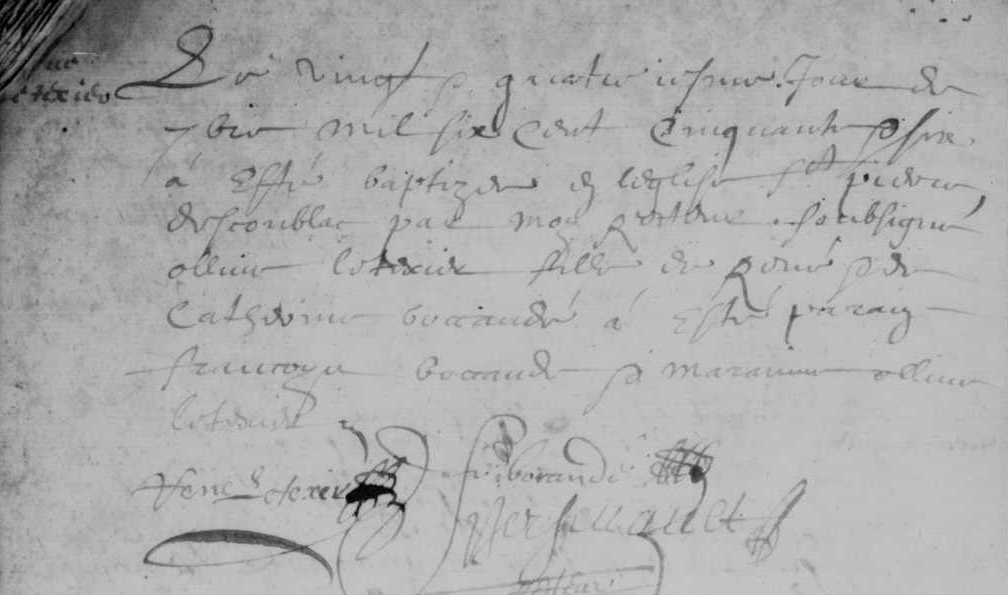 Le vingt & quatriesme Jour de
7bre mil six cent cinquante & six
á Esté baptizée en leglise St pierre
descoublac par moy Recteur soubsigné
ollive letexier fille de René & de
Catherine boccandé á Esté parain
francoys boccande & maraine ollive
letexier
Rene letexier fr: bocande